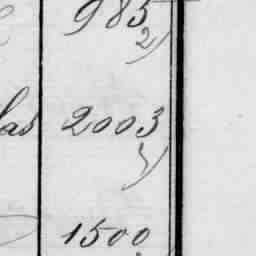 985
2)
las 2003
1500